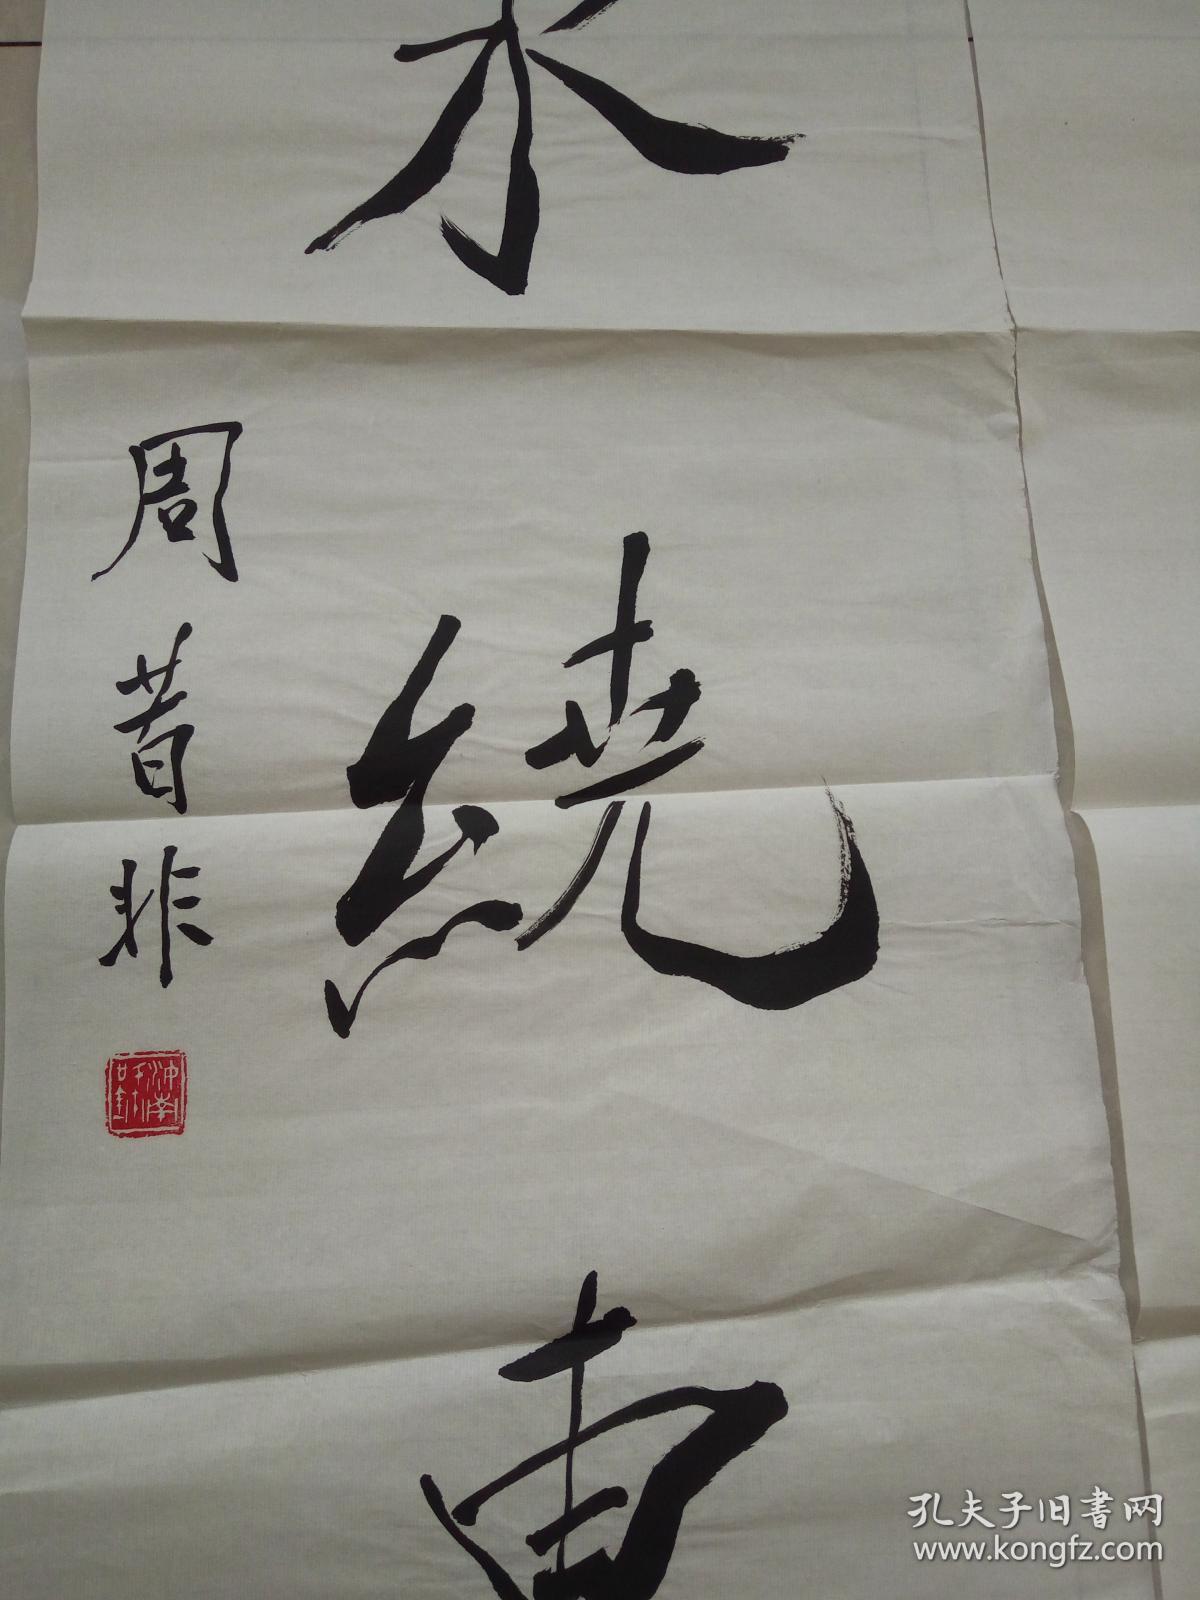 水繞由
周昔非
孔夫子旧书网
www.kongfz.com